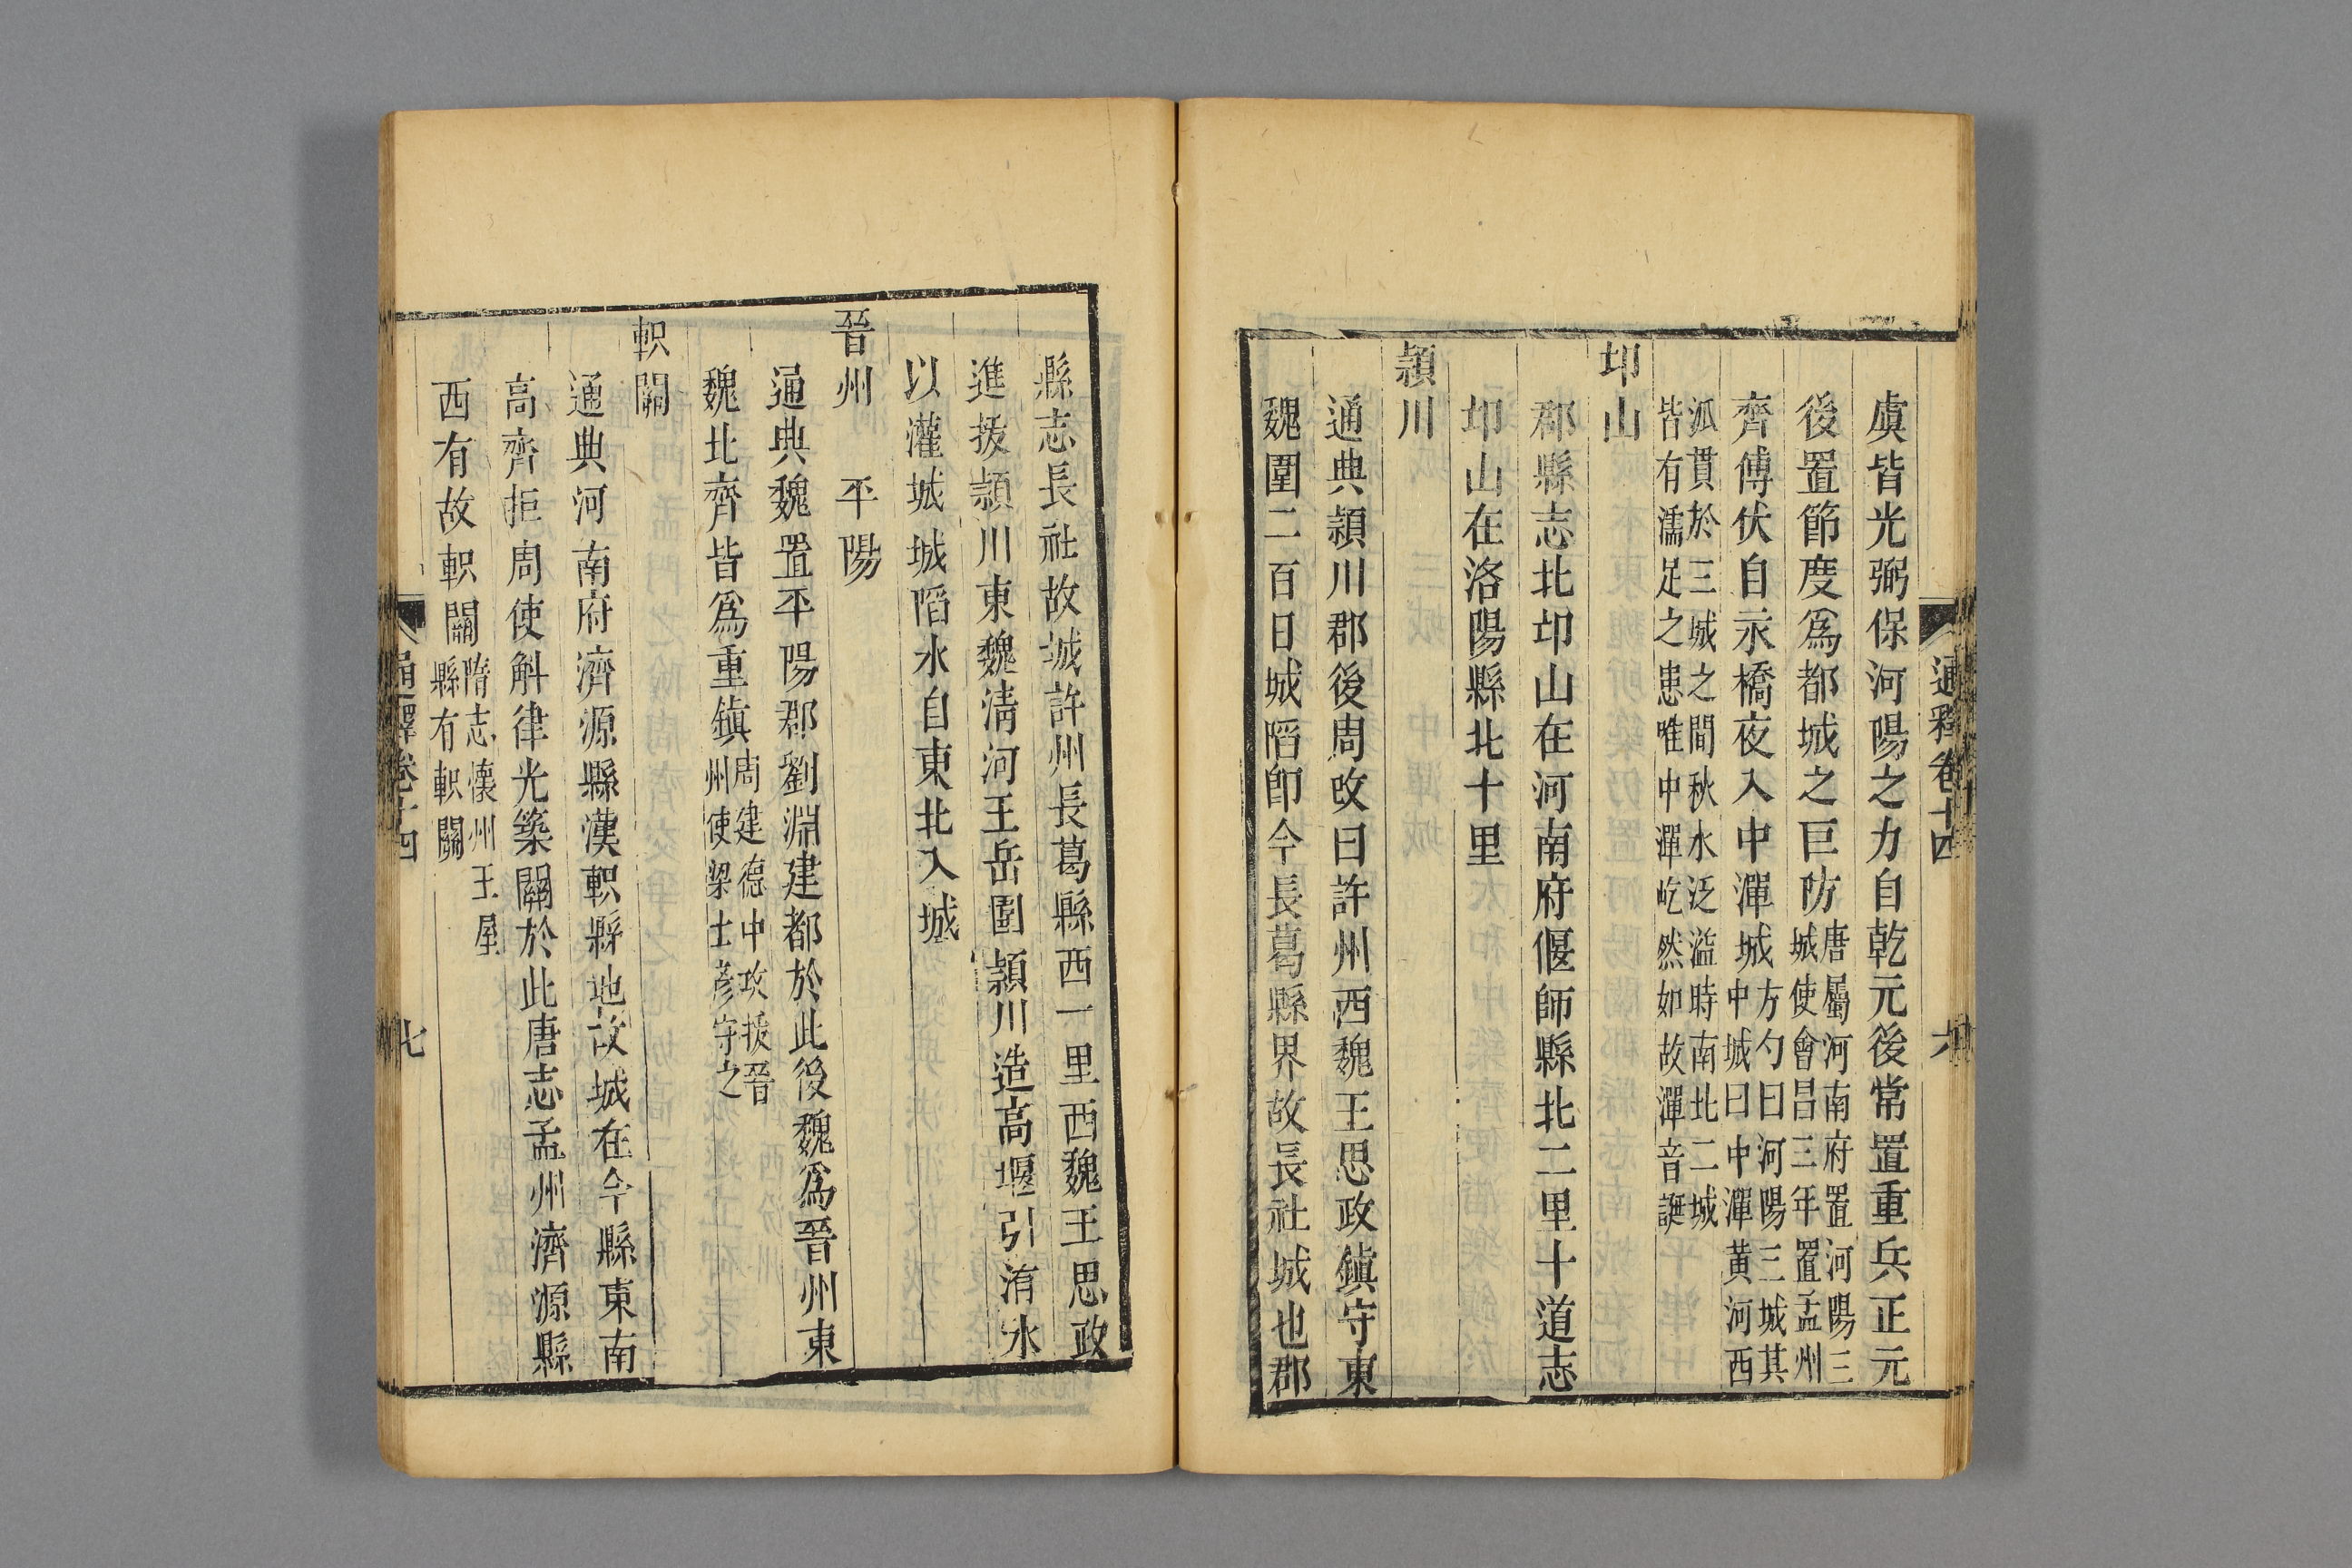 通釋卷十四　六
虞皆光弼保河陽之力自乾元後常置重兵正元
後置節度爲都城之巨防唐屬河南府置河陽三城使會昌三年置孟州
齊傅伏自永橋夜入中潬城方勺曰河陽三城其中城曰中潬黃河西
泒貫於三城之間秋水泛溢時南北二城皆有濡足之患唯中潬屹然如故潬音誕
邙山
郡縣志北邙山在河南府偃師縣北二里十道志
邙山在洛陽縣北十里
潁川
通典潁川郡後周改曰許州西魏王思政鎮守東
魏圍二百日城䧟卽今長葛縣界故長社城也郡
縣志長社故城許州長葛縣西一里西魏王思政
進援潁川東魏清河王岳圍潁川造高堰引洧水
以灌城城䧟水自東北入城
晉州　平陽
通典魏置平陽郡劉淵建都於此後魏爲晉州東
魏北齊皆爲重鎮周建德中攻拔晉州使梁士彥守之
軹關
通典河南府濟源縣漢軹縣地故城在今縣東南
高齊拒周使斛律光築關於此唐志孟州濟源縣
西有故軹關隋志懷州王屋縣有軹關
通釋卷十四　七